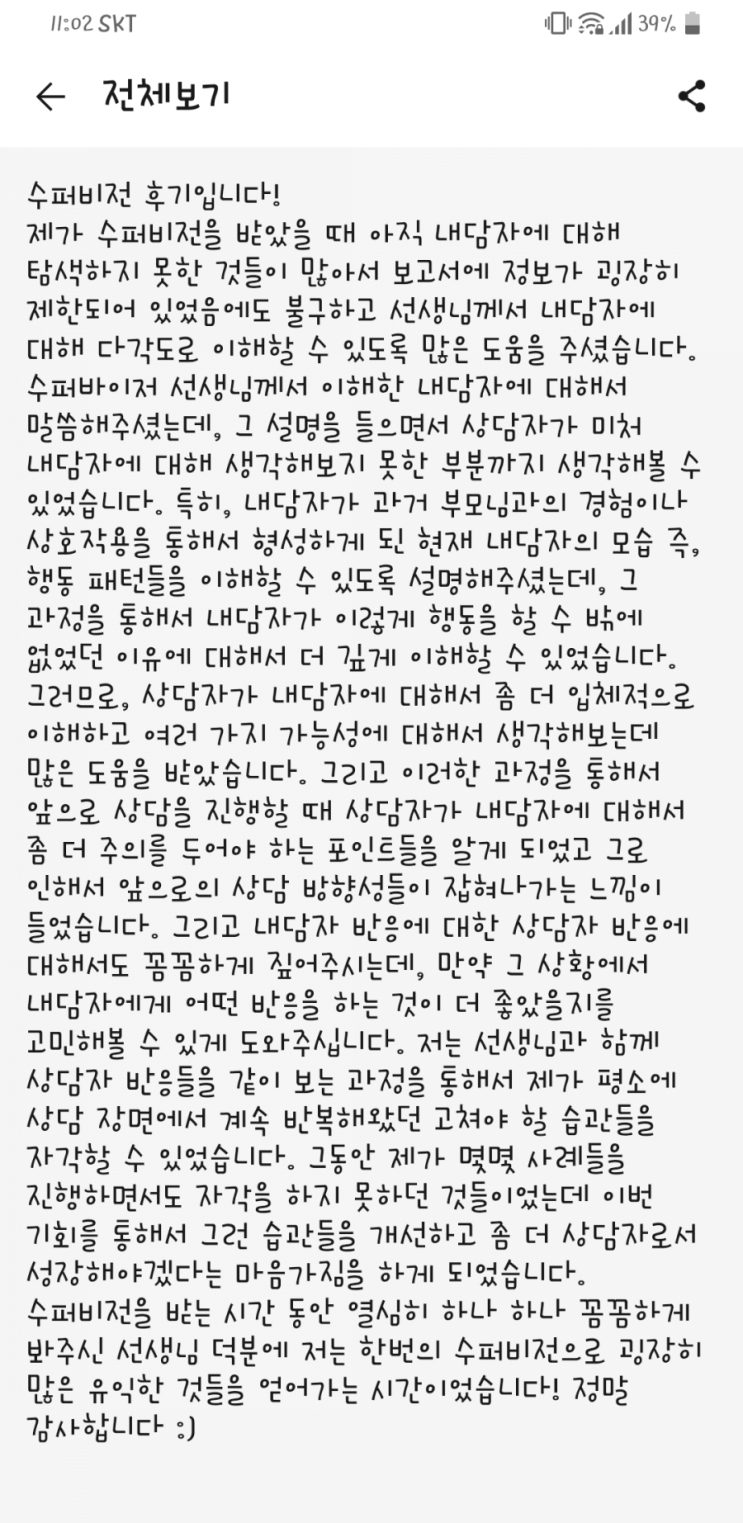 11:02 SKT 39%
전체보기
수퍼비전 후기입니다!
제가 수퍼비전을 받았을 때 아직 내담자에 대해
탐색하지 못한 것들이 많아서 보고서에 정보가 굉장히
제한되어 있었음에도 불구하고 선생님께서 내담자에
대해 다각도로 이해할 수 있도록 많은 도움을 주셨습니다.
수퍼바이저 선생님께서 이해한 내담자에 대해서
말씀해주셨는데, 그 설명을 들으면서 상담자가 미처
내담자에 대해 생각해보지 못한 부분까지 생각해볼 수
있었습니다. 특히, 내담자가 과거 부모님과의 경험이나
상호작용을 통해서 형성하게 된 현재 내담자의 모습 즉,
행동 패턴들을 이해할 수 있도록 설명해주셨는데, 그
과정을 통해서 내담자가 이렇게 행동을 할 수 밖에
없었던 이유에 대해서 더 깊게 이해할 수 있었습니다.
그러므로, 상담자가 내담자에 대해서 좀 더 입체적으로
이해하고 여러 가지 가능성에 대해서 생각해보는데
많은 도움을 받았습니다. 그리고 이러한 과정을 통해서
앞으로 상담을 진행할 때 상담자가 내담자에 대해서
좀 더 주의를 두어야 하는 포인트들을 알게 되었고 그로
인해서 앞으로의 상담 방향성들이 잡혀나가는 느낌이
들었습니다. 그리고 내담자 반응에 대한 상담자 반응에
대해서도 꼼꼼하게 짚어주시는데, 만약 그 상황에서
내담자에게 어떤 반응을 하는 것이 더 좋았을지를
고민해볼 수 있게 도와주십니다. 저는 선생님과 함께
상담자 반응들을 같이 보는 과정을 통해서 제가 평소에
상담 장면에서 계속 반복해왔던 고쳐야 할 습관들을
자각할 수 있었습니다. 그동안 제가 몇몇 사례들을
진행하면서도 자각을 하지 못하던 것들이었는데 이번
기회를 통해서 그런 습관들을 개선하고 좀 더 상담자로서
성장해야겠다는 마음가짐을 하게 되었습니다.
수퍼비전을 받는 시간 동안 열심히 하나 하나 꼼꼼하게
봐주신 선생님 덕분에 저는 한번의 수퍼비전으로 굉장히
많은 유익한 것들을 얻어가는 시간이었습니다! 정말
감사합니다 :)